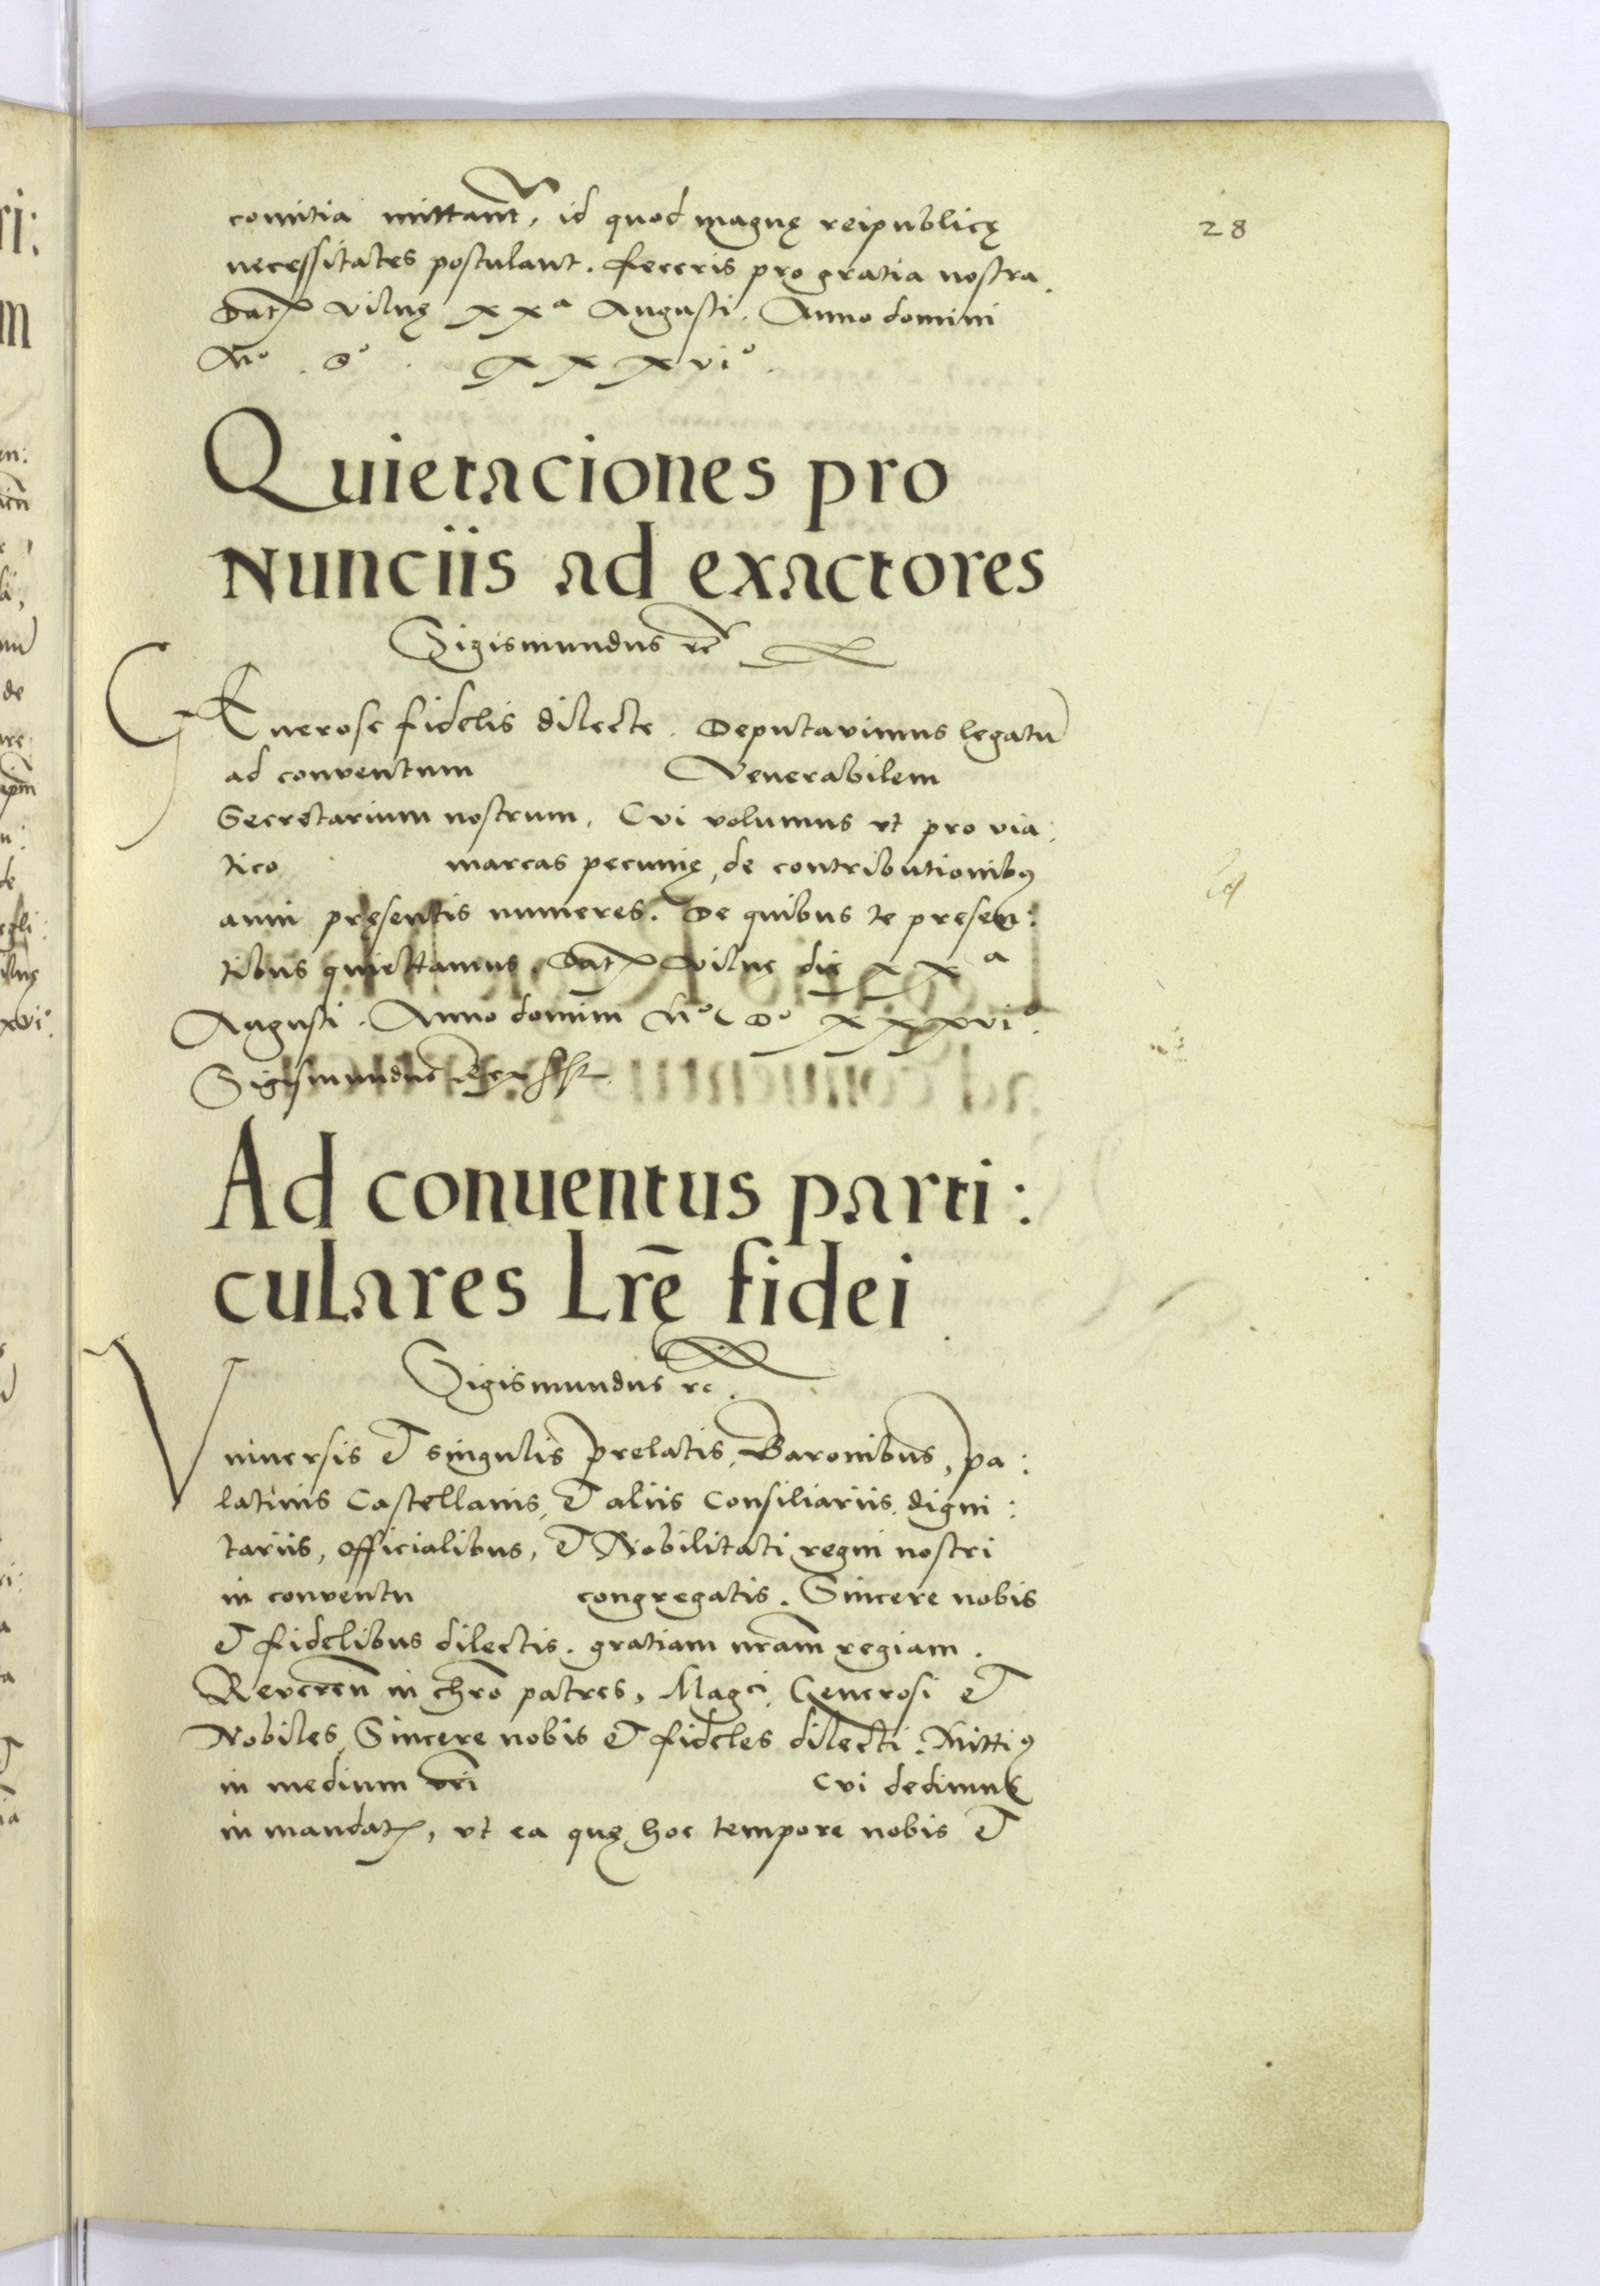 28
comitia mittant, id quod magnę reipublicę
necessitates postulant. feceris pro gratia nostra.
Dat Vilnę XXa Augusti. Anno domini
Mo. Do. XXXVIo.
Quietaciones pro
Nunciis ad exactores
Sigismundus rc
GEnerose fidelis dilecte. Deputavimus legatū
ad conventum Venerabilem
Secretarium nostrum. Cui volumus ut pro via:
tico marcas pecunię, de contributionibꝰ
anni pręsentis numeres. De quibus te presen:
tibus quiettamus. Dat Vilnę die XXa
Augusti. Anno domini Mo Do XXXVIo.
Sigismundus Rex sst
Ad conuentus parti:
culares Lrē fidei
Sigismundus rc.
Vniuersis et singulis prelatis, Baronibus, pa:
latinis Castellanis, et aliis Consiliariis, digni:
tariis, officialibus, et Nobilitati regni nostri
in conventu congregatis. Sincere nobis
et fidelibus dilectis. gratiam nram regiam.
Reveren in chro patres, Magci, Generosi et
Nobiles, Sincere nobis et fideles dilecti. Mittiꝰ
in medium vri Cui dedimus
in mandat, ut ea quę hoc tempore nobis et